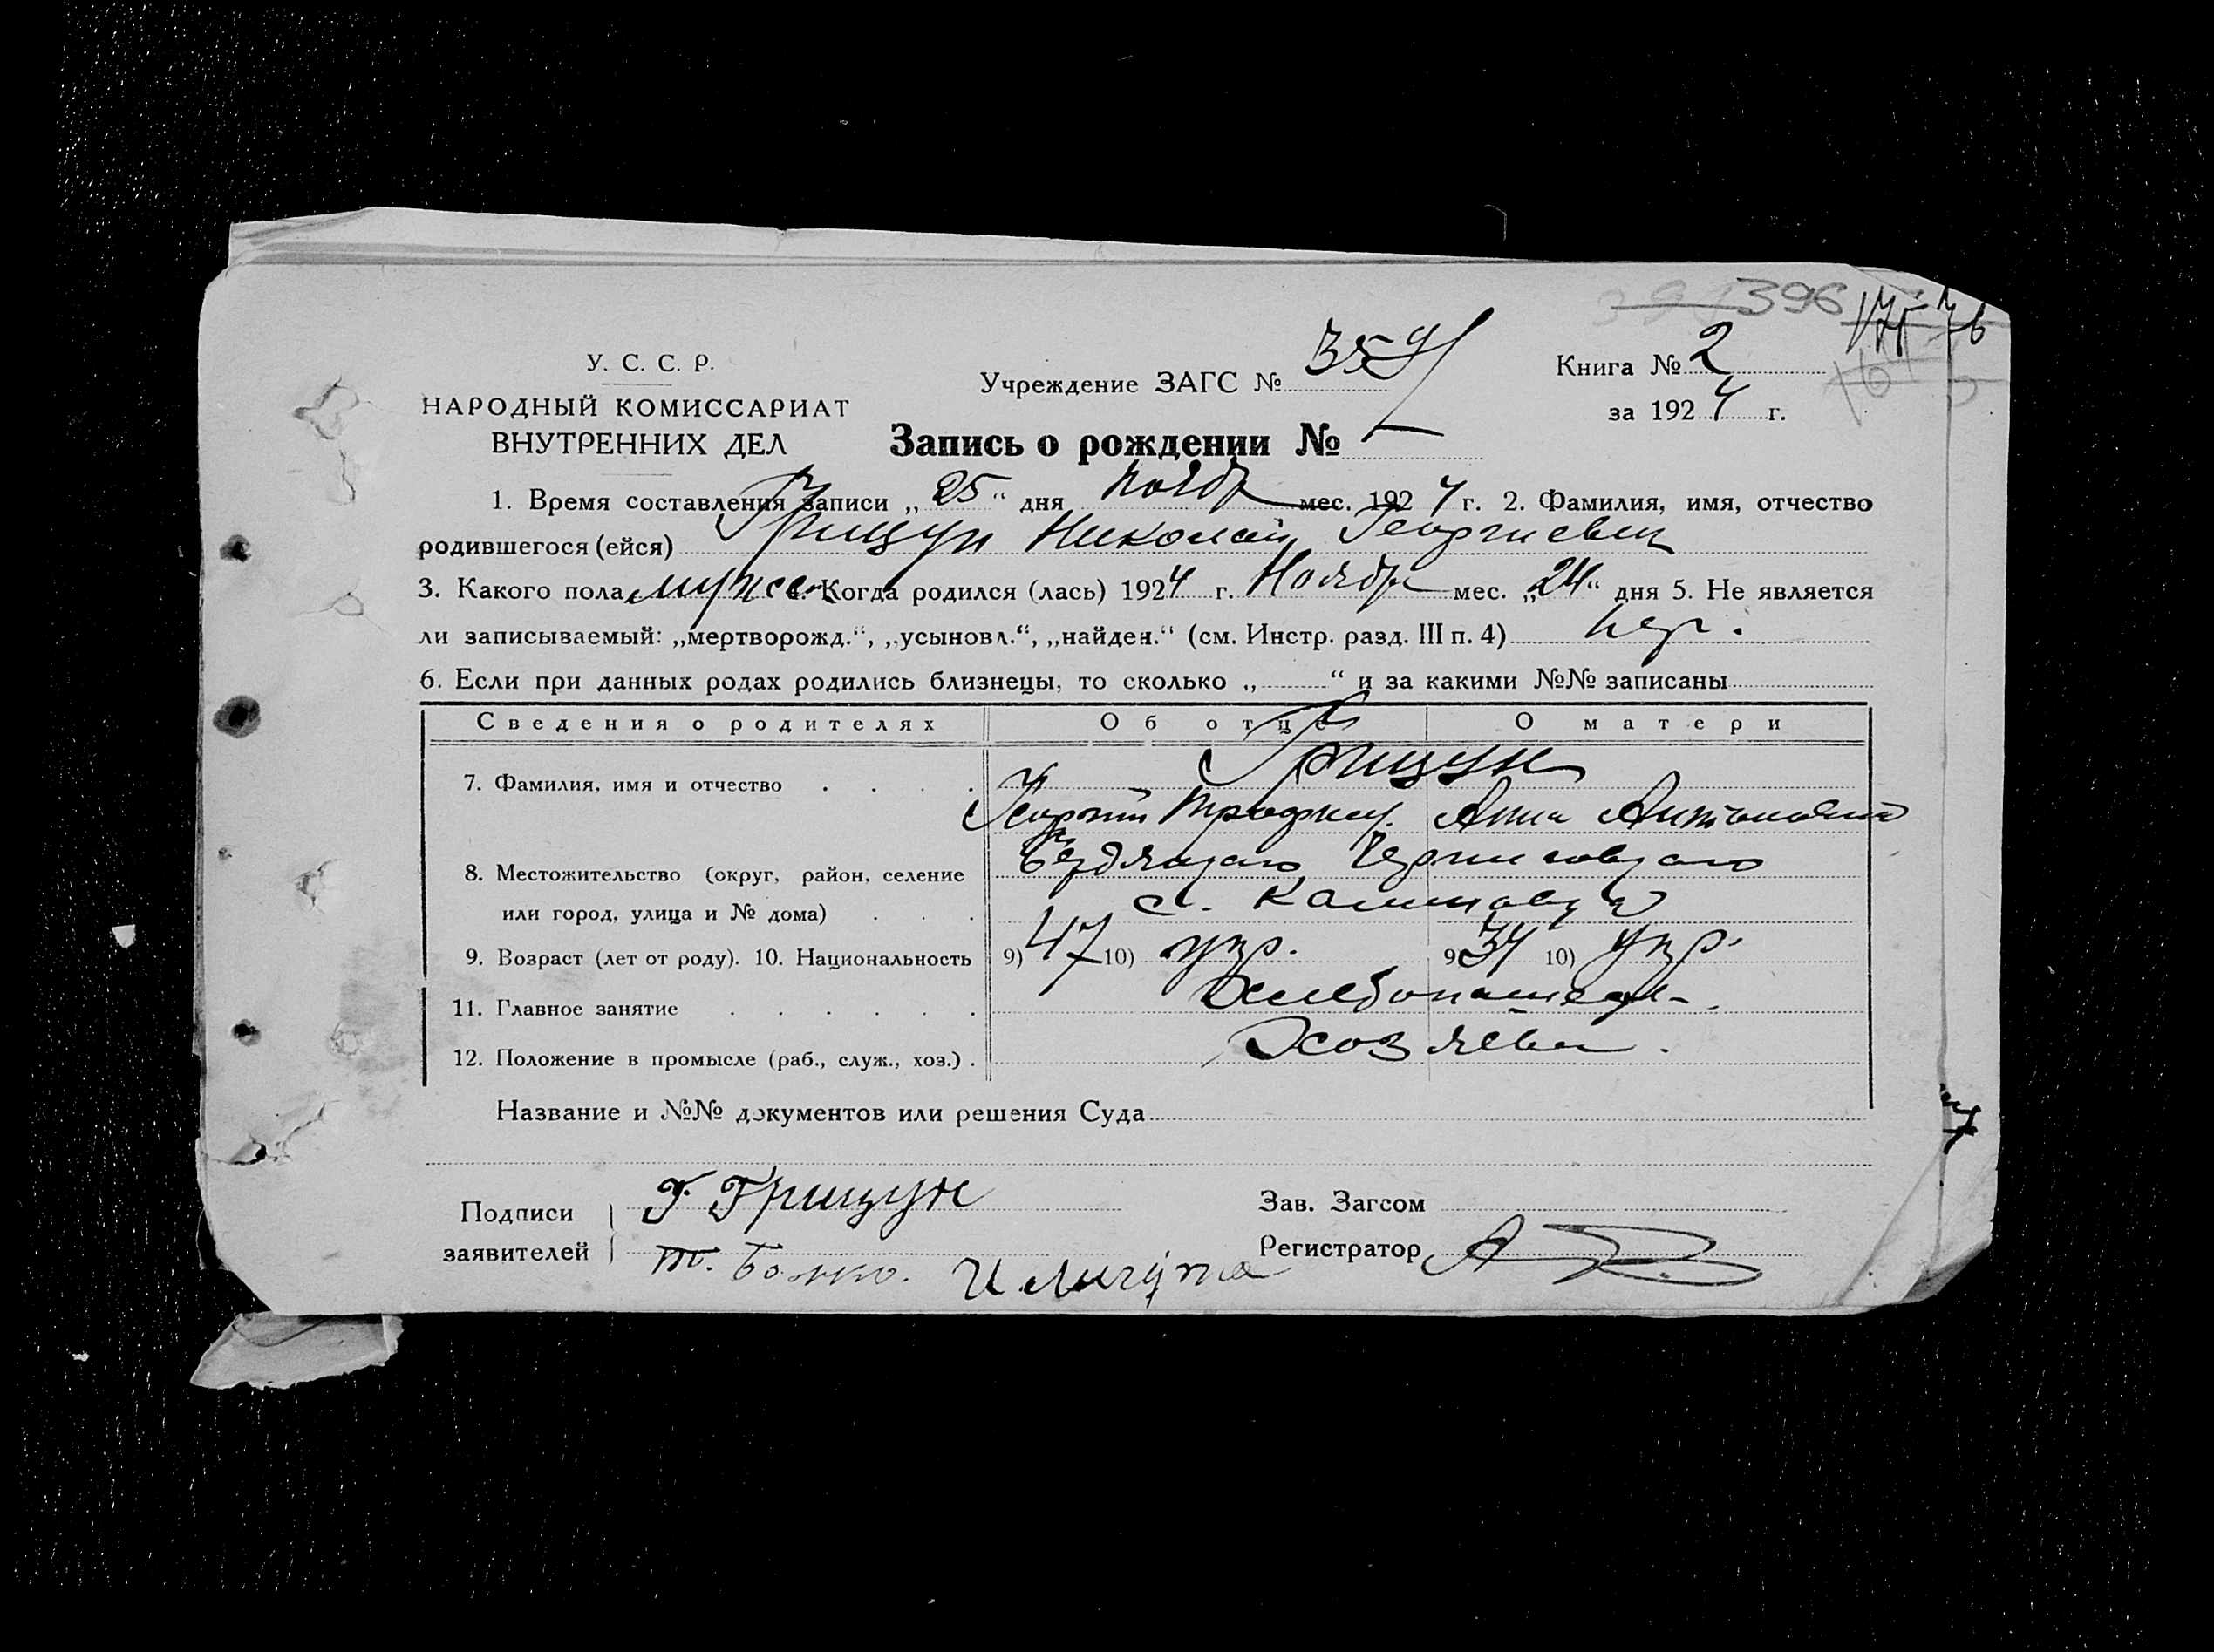 396
У. С. С. Р.
НАРОДНЫЙ КОМИССАРИАТ
ВНУТРЕННИХ ДЕЛ
Учреждение ЗАГС №
Книга № 2
за 1924 г.
Запись о рождении №
1. Время составления записи „25“ дня Ноябр мес. 1924 г. 2. Фамилия, имя, отчество
родившегося (ейся) Грицун Николай Георгиевич
3. Какого пола мужс. Когда родился (лась) 1924 г. Ноябр мес. „24“ дня 5. Не является
ли записываемый: „мертворожд.“, „усыновл.“, „найден.“ (см. Инстр. разд. III п. 4)
6. Если при данных родах родились близнецы, то сколько „ “ и за какими №№ записаны
Сведения о родителях Об отце О матери
7. Фамилия, имя и отчество Грицун
Георгий Трофим. Анна Антоновна
8. Местожительство (округ, район, селение
или город, улица и № дома) с.
9. Возраст (лет от роду). 10. Национальность 9) 47 10) укр. 9) 34 10) укр.
11. Главное занятие Хлебопашед.
12. Положение в промысле (раб., служ., хоз.) Хозяева.
Название и №№ документов или решения Суда
Подписи
заявителей
Г. Грицун
Т. Божко.
Зав. Загсом
Регистратор